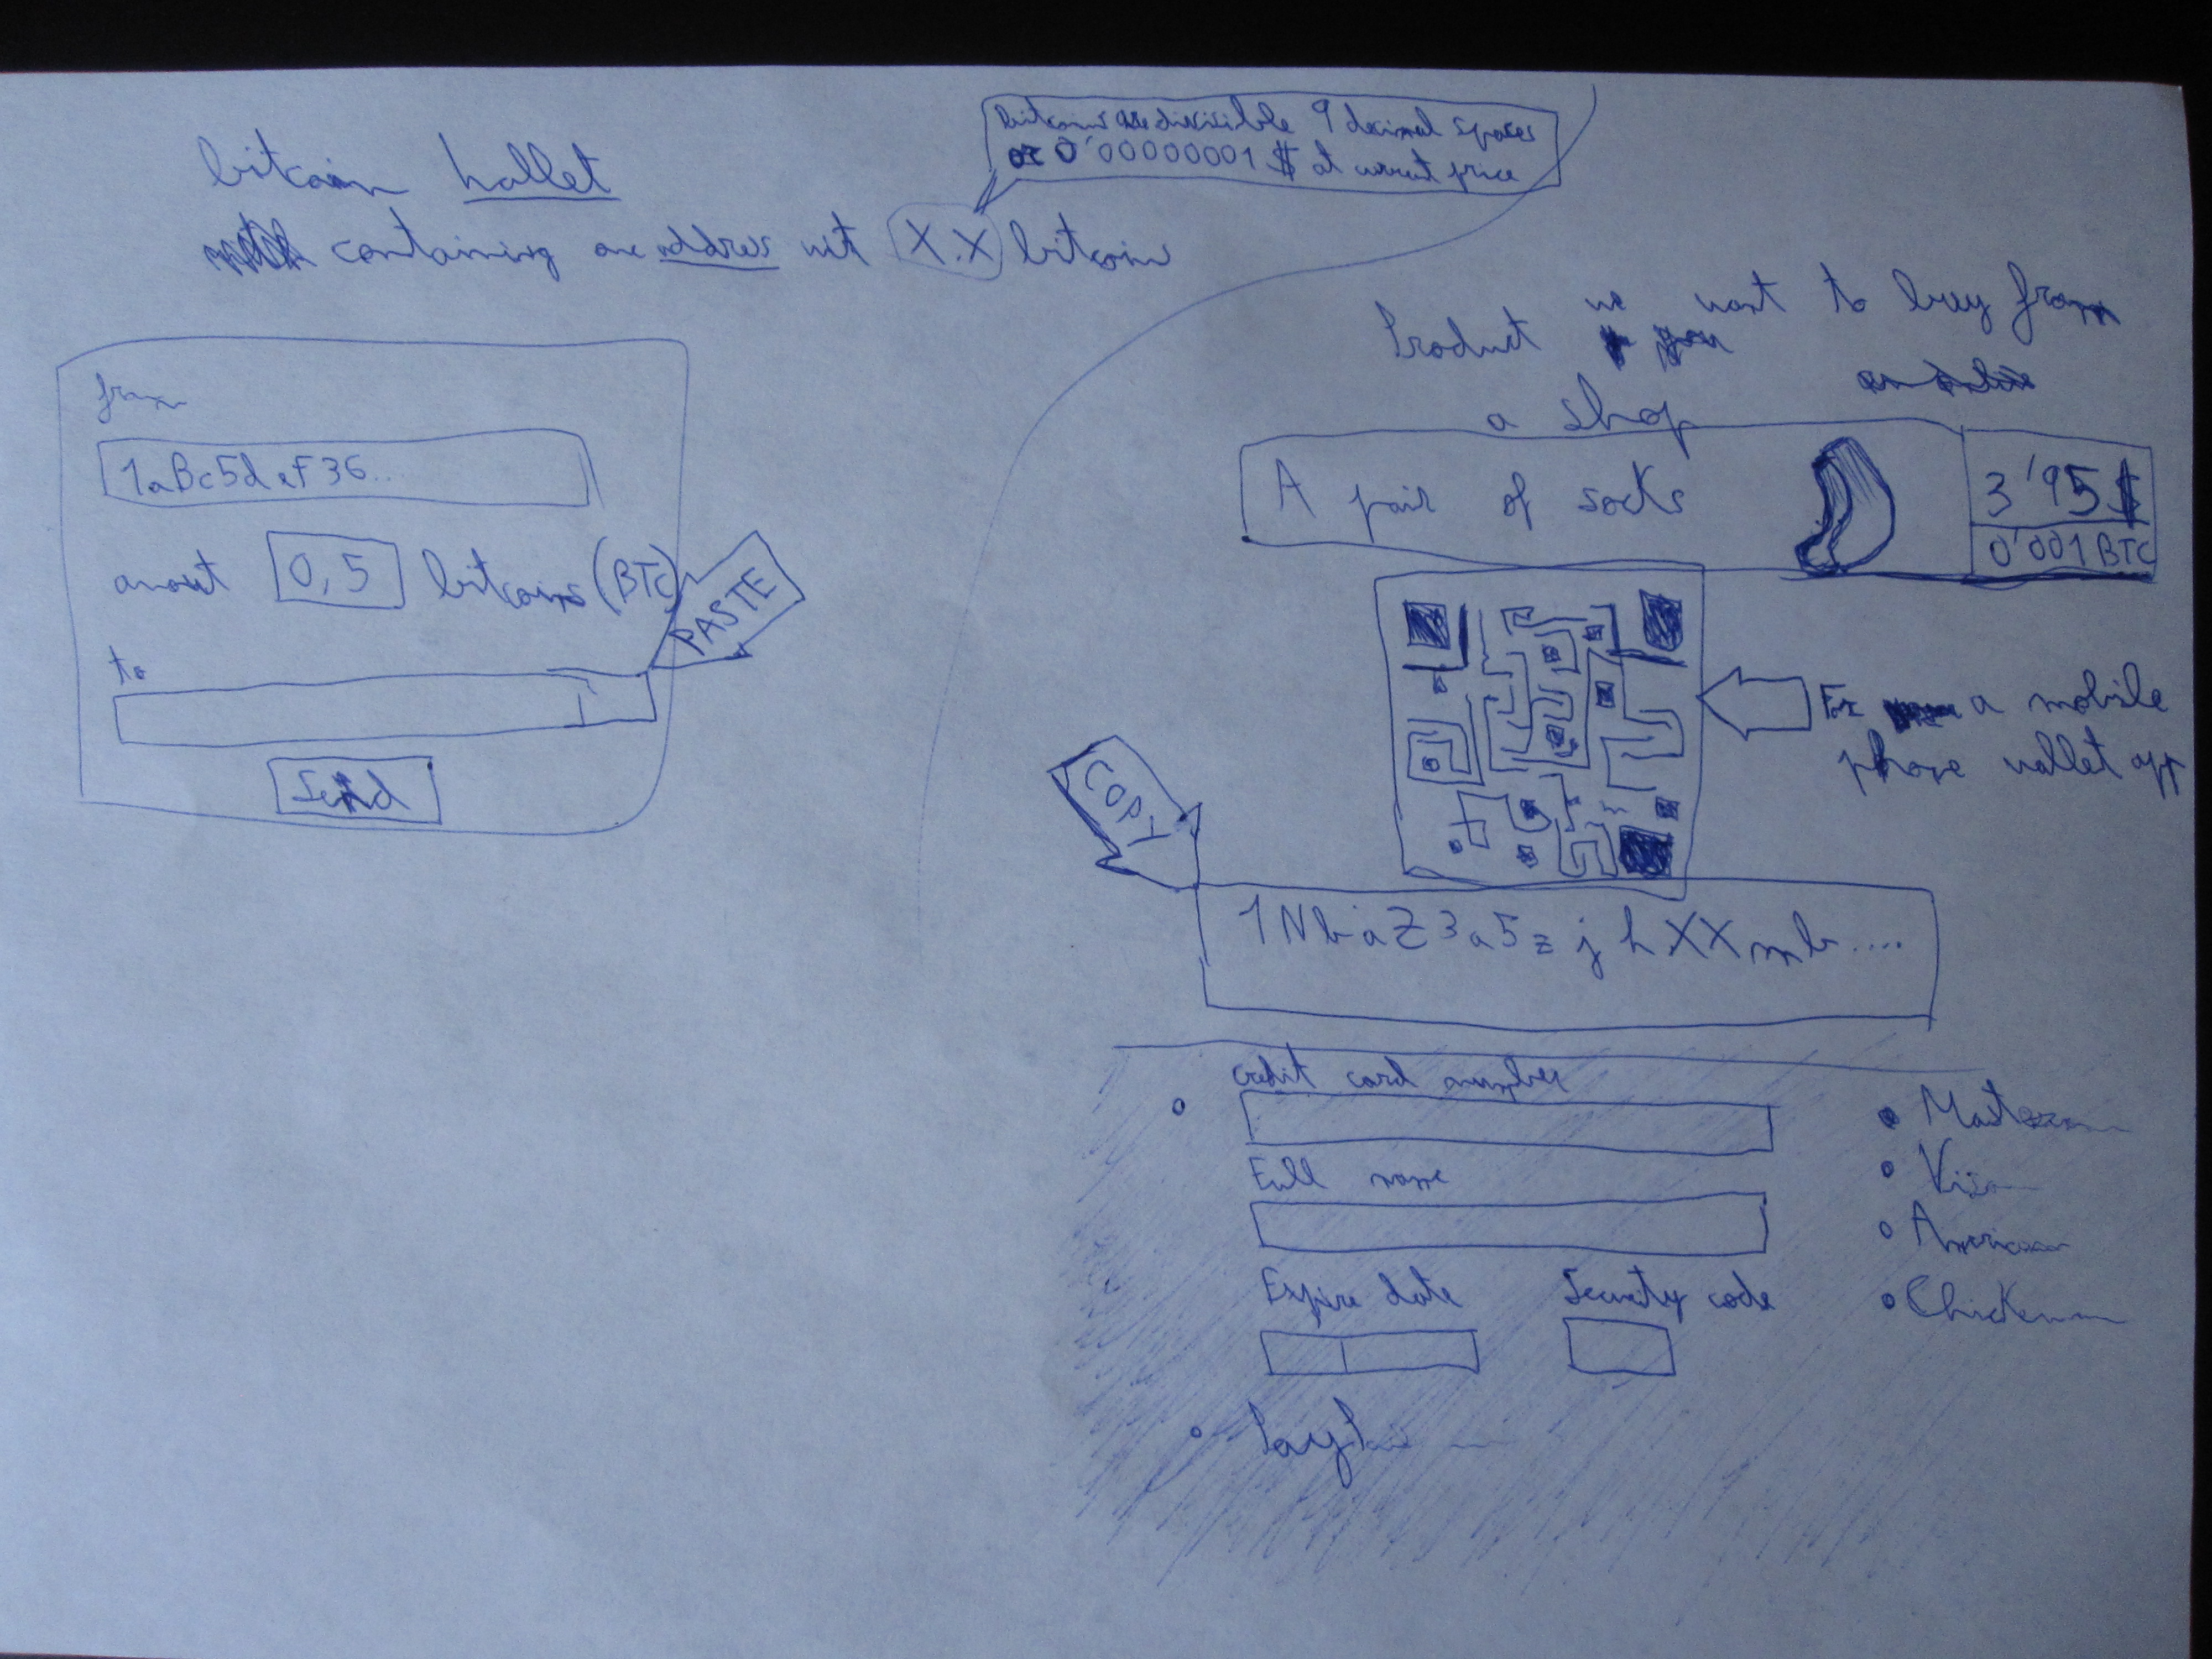 bitcoin wallet
containing one address with X.X bitcoin
bitcoins are divisible 9 decimal spaces
0'00000001 $ at current price
from
1aBc5d eF36...
amount 0,5 bitcoins (BTC)
to
PASTE
Send
Product we want to buy from
a shop
A pair of socks
3'95 $
0'001 BTC
For a mobile
phone wallet app
COPY
1NbiaZ3a5zjhXXmb....
Credit card number
Full name
Expire date
Security code
• Mastercard
• Visa
• American